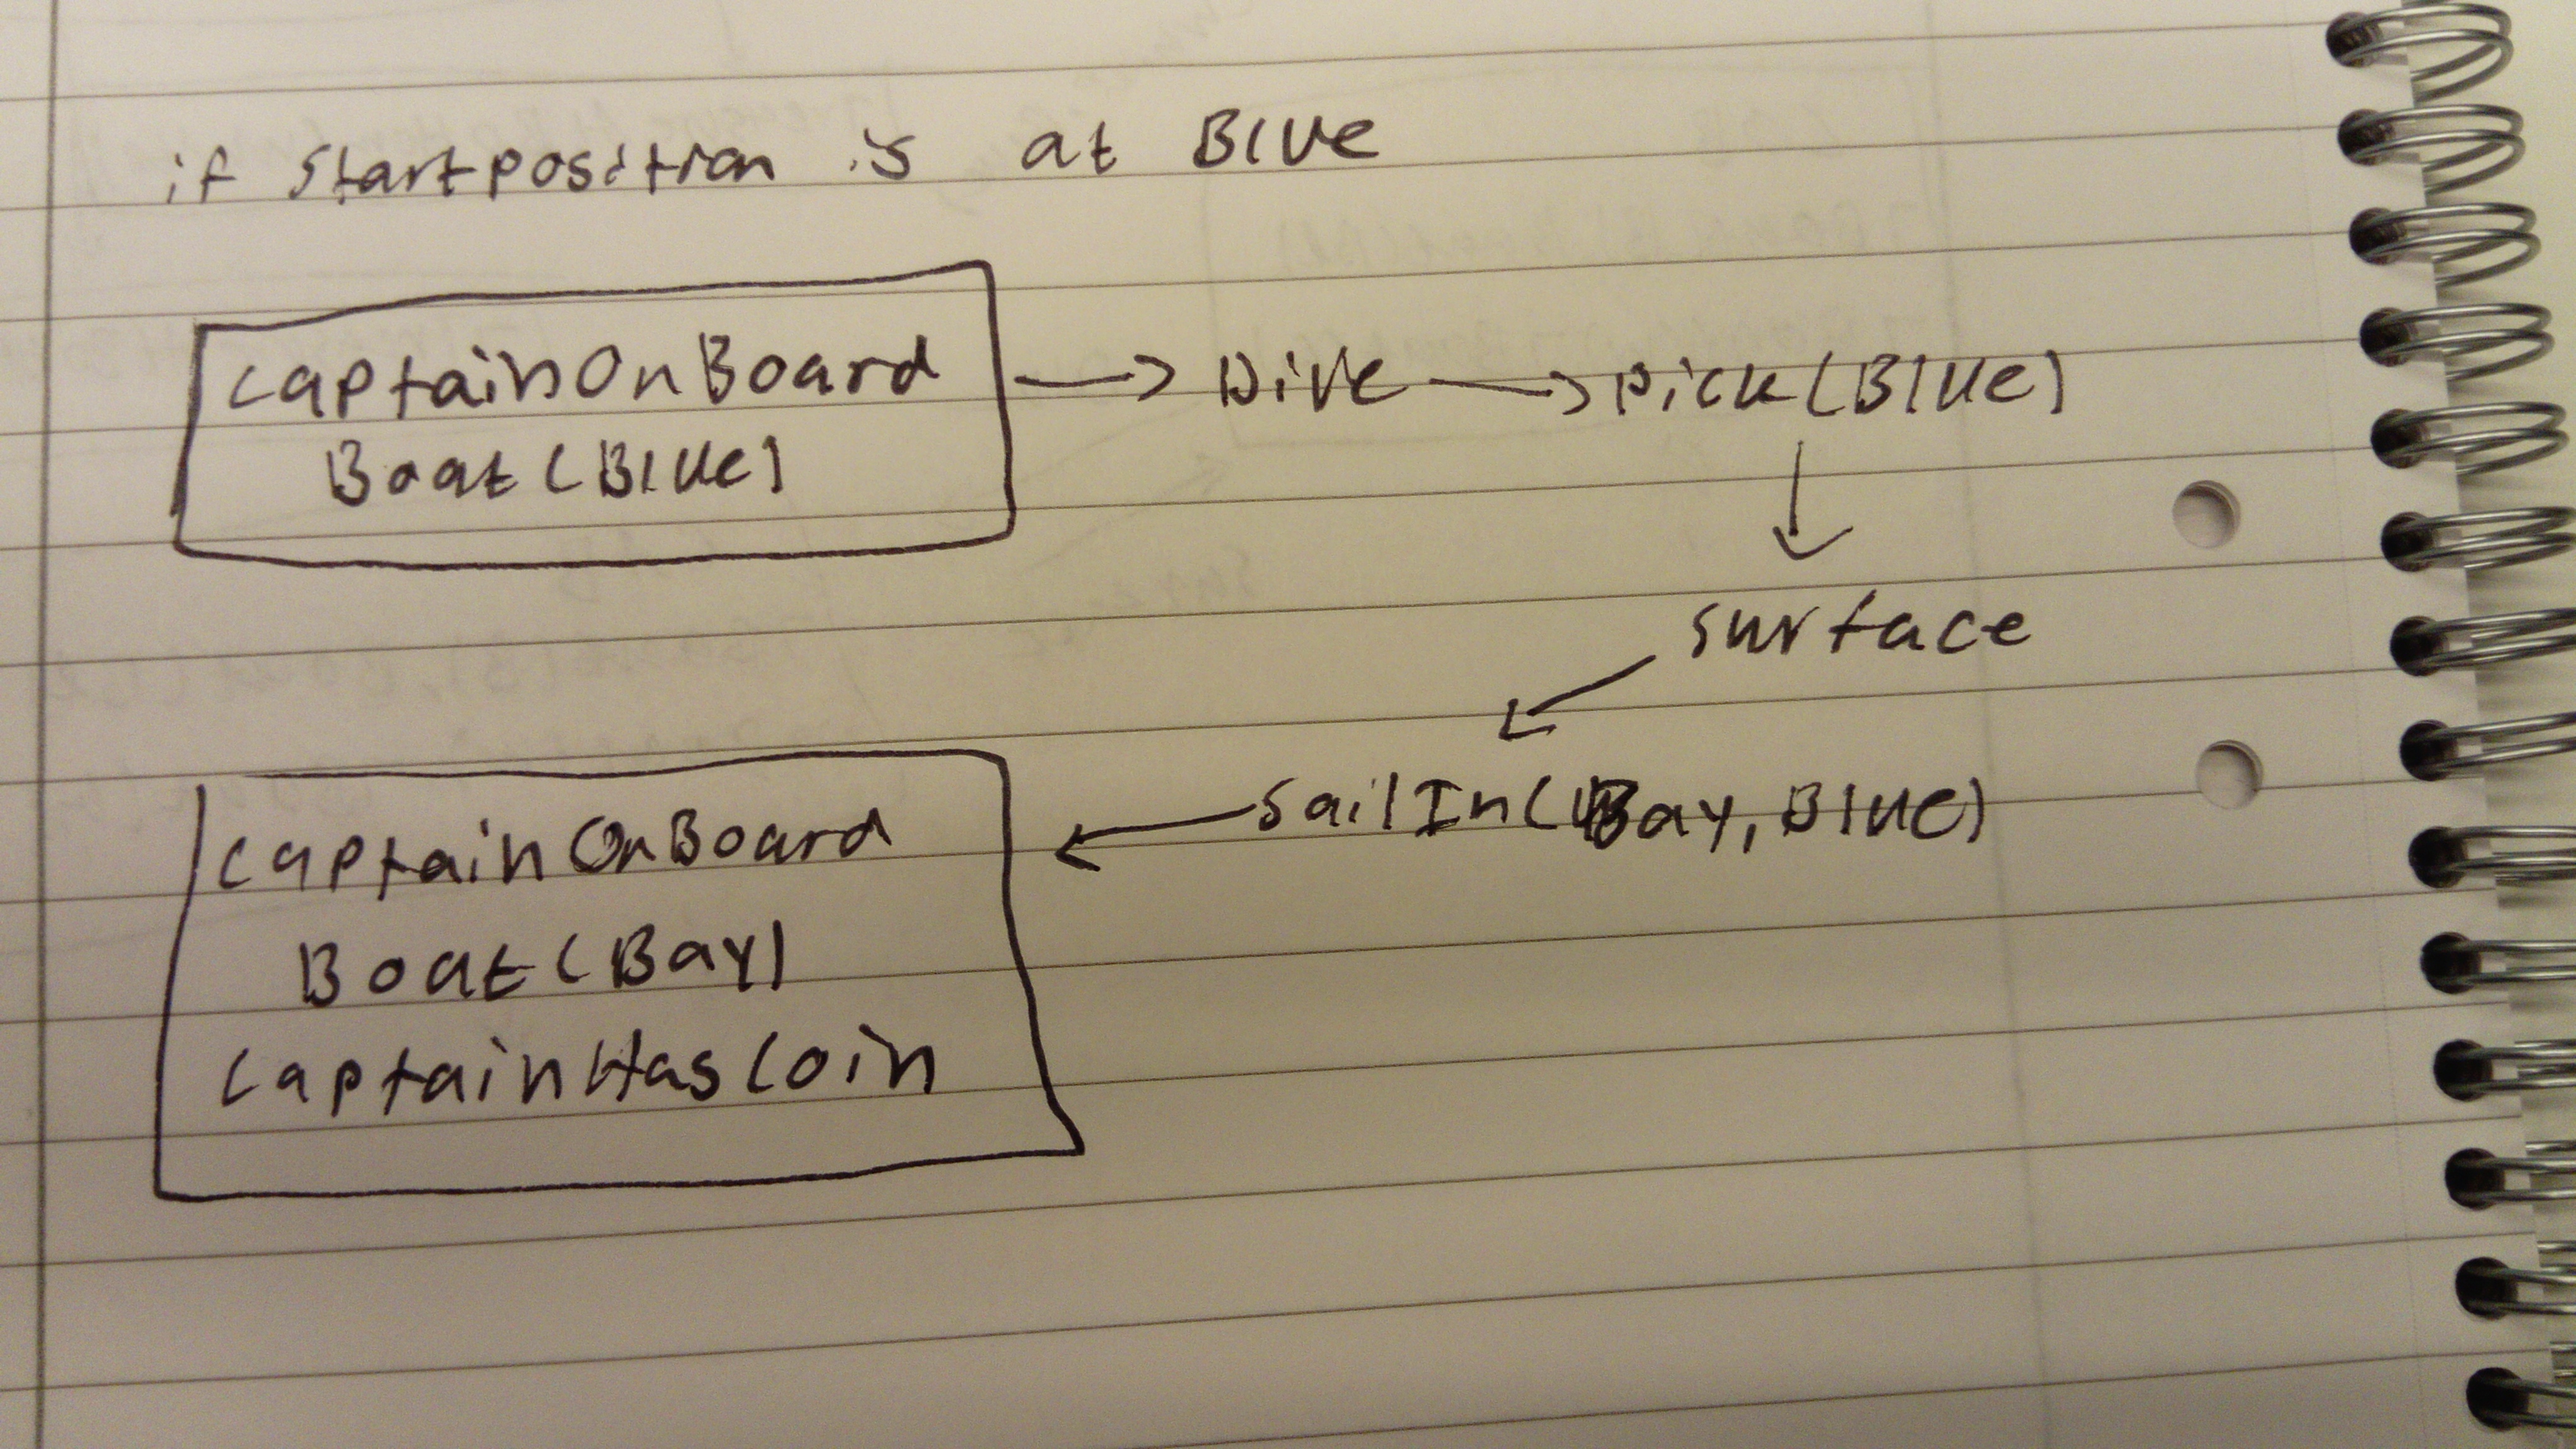 if Startposition is at Blue
CaptainOnBoard
Boat(Blue)
Dive
pick(Blue)
surface
SailIn(Bay, Blue)
CaptainOnBoard
Boat(Bay)
CaptainHasCoin